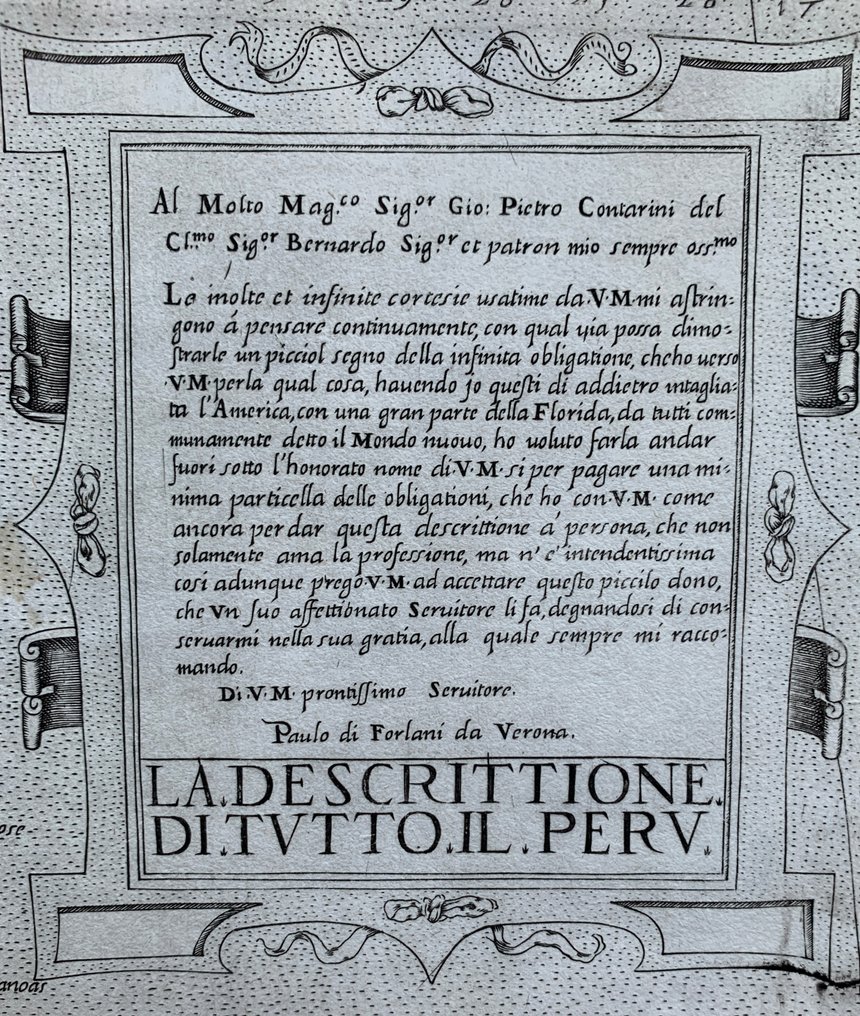 29 28 27 28 17
Al Molto Mag.co Sig.or Gio: Pietro Contarini del
Cl.mo Sig.or Bernardo Sig.or et patron mio sempre oss.mo
Le molte et infinite cortesie usatime da V·M· mi astrin=
gono á pensare continuamente, con qual uia possa dimo=
strarle un picciol segno della infinita obligatione, cheho uerso
·V·M· perla qual cosa, hauendo jo questi di addietro intaglia=
ta l'America, con una gran parte della Florida, da tutti com=
munamente detto il Mondo nuouo, ho uoluto farla andar
fuori sotto l'honorato nome di·V·M· si per pagare una mi=
nima particella delle obligationi, che ho con·V·M· come
ancora per dar questa descrittione á persona, che non
solamente ama la professione, ma n' e' intendentissima
cosi adunque prego·V·M· ad accettare questo piccilo dono,
che Vn suo affettionato Seruitore li fa, degnandosi di con=
seruarmi nella sua gratia, alla quale sempre mi racco=
mando.
Di·V·M· prontissimo Seruitore.
Paulo di Forlani da Verona.
LA.DESCRITTIONE.
DI.TVTTO.IL.PERV.
ose
anoas